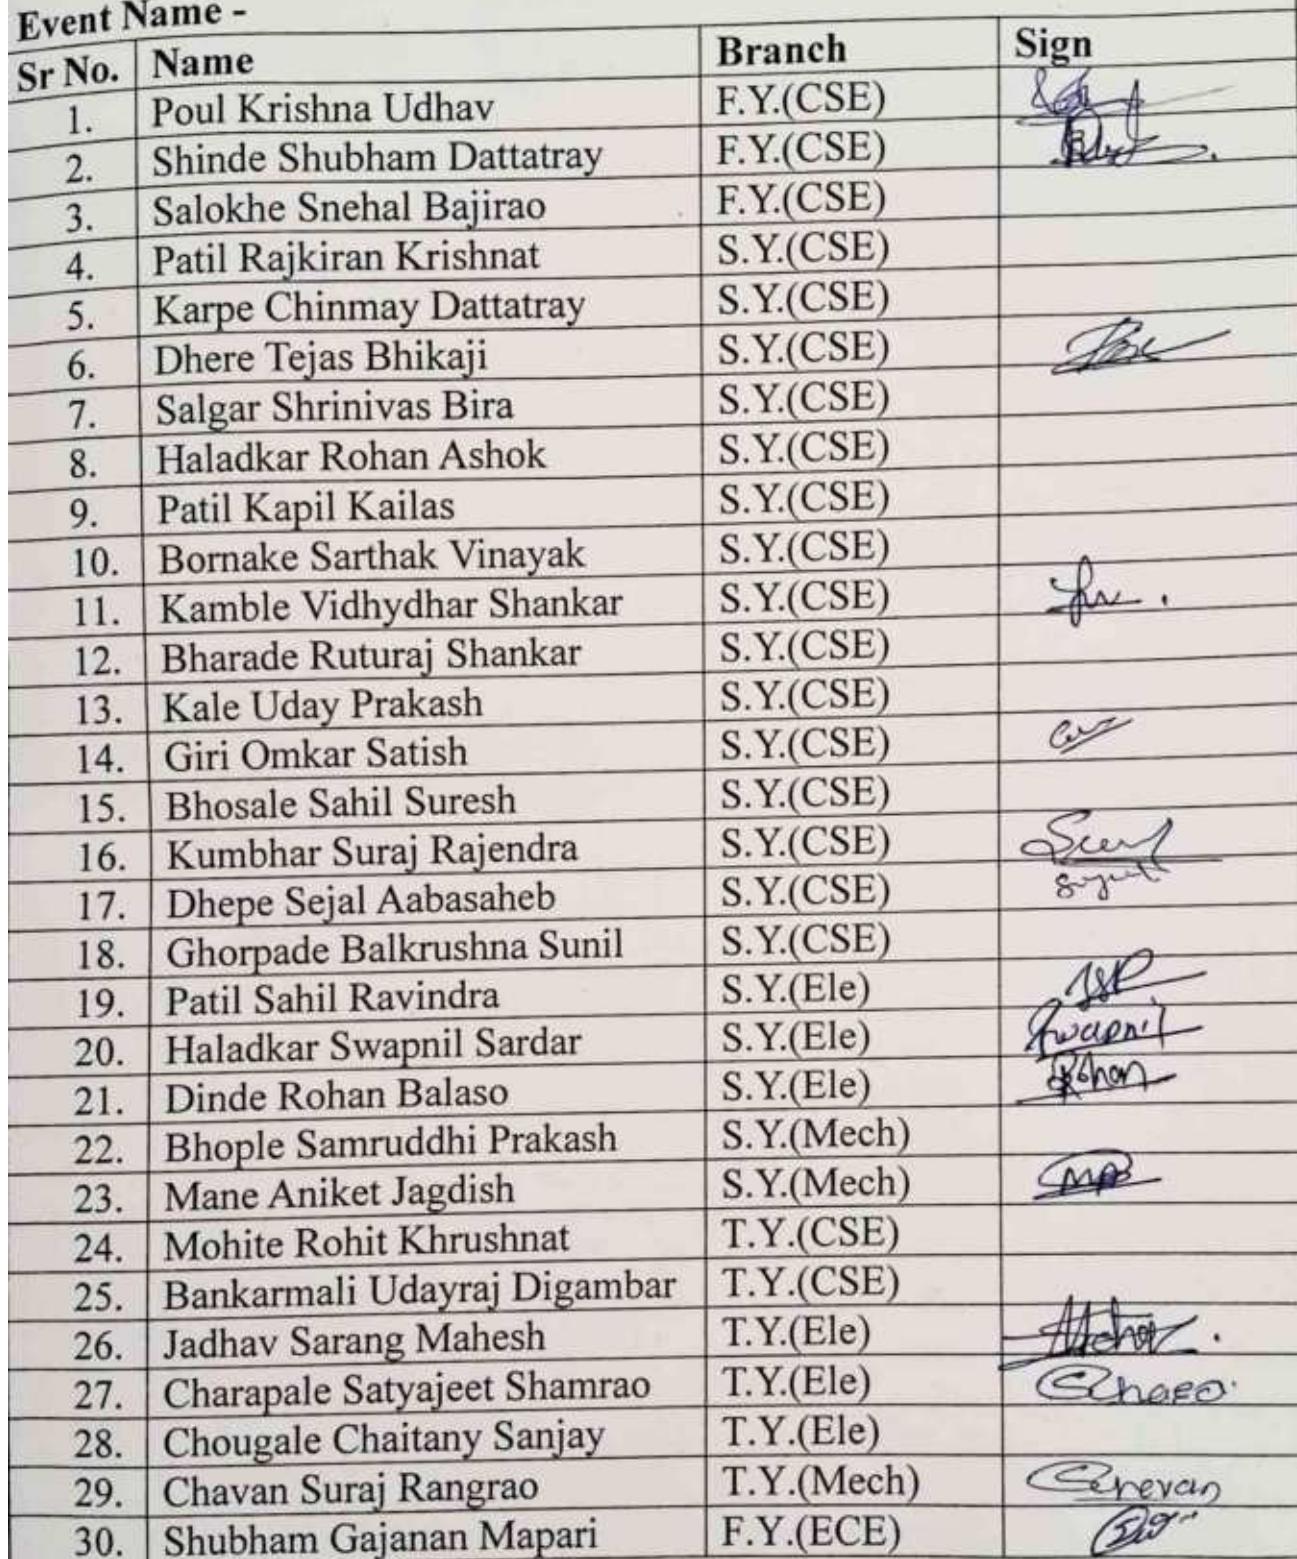 Event Name -
Sr No. Name Branch Sign
1. Poul Krishna Udhav F.Y.(CSE)
2. Shinde Shubham Dattatray F.Y.(CSE)
3. Salokhe Snehal Bajirao F.Y.(CSE)
4. Patil Rajkiran Krishnat S.Y.(CSE)
5. Karpe Chinmay Dattatray S.Y.(CSE)
6. Dhere Tejas Bhikaji S.Y.(CSE)
7. Salgar Shrinivas Bira S.Y.(CSE)
8. Haladkar Rohan Ashok S.Y.(CSE)
9. Patil Kapil Kailas S.Y.(CSE)
10. Bornake Sarthak Vinayak S.Y.(CSE)
11. Kamble Vidhydhar Shankar S.Y.(CSE)
12. Bharade Ruturaj Shankar S.Y.(CSE)
13. Kale Uday Prakash S.Y.(CSE)
14. Giri Omkar Satish S.Y.(CSE)
15. Bhosale Sahil Suresh S.Y.(CSE)
16. Kumbhar Suraj Rajendra S.Y.(CSE)
17. Dhepe Sejal Aabasaheb S.Y.(CSE)
18. Ghorpade Balkrushna Sunil S.Y.(CSE)
19. Patil Sahil Ravindra S.Y.(Ele)
20. Haladkar Swapnil Sardar S.Y.(Ele) Swapnil
21. Dinde Rohan Balaso S.Y.(Ele) Rohan
22. Bhople Samruddhi Prakash S.Y.(Mech)
23. Mane Aniket Jagdish S.Y.(Mech)
24. Mohite Rohit Khrushnat T.Y.(CSE)
25. Bankarmali Udayraj Digambar T.Y.(CSE)
26. Jadhav Sarang Mahesh T.Y.(Ele)
27. Charapale Satyajeet Shamrao T.Y.(Ele)
28. Chougale Chaitany Sanjay T.Y.(Ele)
29. Chavan Suraj Rangrao T.Y.(Mech)
30. Shubham Gajanan Mapari F.Y.(ECE)